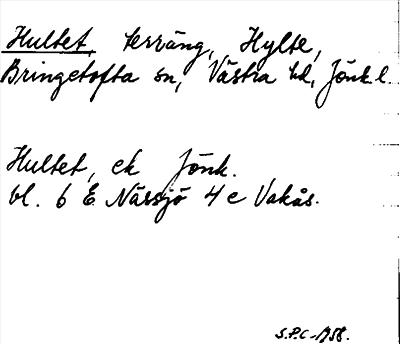 Hultet, terräng, Hylte,
Bringetofta sn, Västra hd, Jönk.l.
Hultet, ek Jönk.
bl. 6 E Nässjö 4 e Vakås.
S.P.C. 1958.